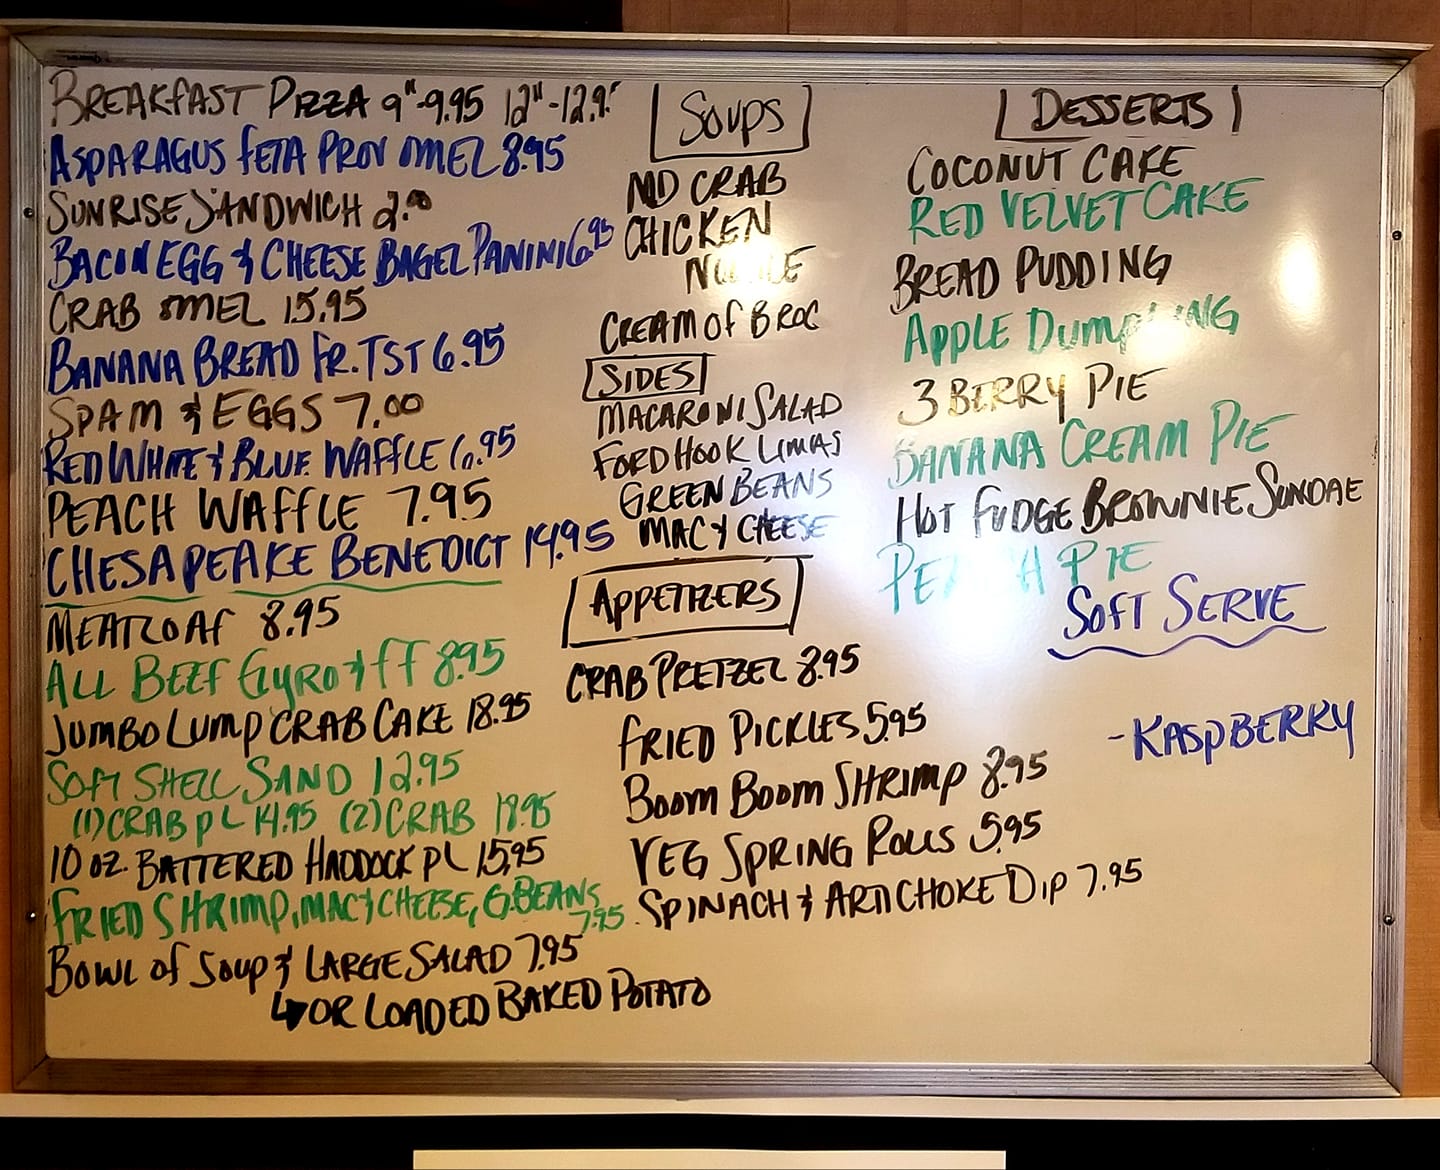 BREAKFAST PIZZA 9"-9.95 12"-12.9
ASPARAGUS FETA PROV OMEL 8.95
SUNRISE SANDWICH 2.00
BACON EGG & CHEESE BAGEL PANINI 6.95
CRAB OMEL 15.95
BANANA BREAD FR. TST 6.95
SPAM & EGGS 7.00
RED WHITE & BLUE WAFFLE 6.95
PEACH WAFFLE 7.95
CHESAPEAKE BENEDICT 14.95
MEATLOAF 8.95
ALL BEEF GYRO & FF 8.95
JUMBO LUMP CRAB CAKE 18.95
SOFT SHELL SAND 12.95
(1) CRAB PL 14.95 (2) CRAB 18.95
10 OZ. BATTERED HADDOCK PL 15.95
FRIED SHRIMP, MAC & CHEESE, G. BEANS
7.95
BOWL OF SOUP & LARGE SALAD 7.95
OR LOADED BAKED POTATO
SOUPS
MD CRAB
CHICKEN
NOODLE
CREAM OF BROC
SIDES
MACARONI SALAD
FORDHOOK LIMAS
GREEN BEANS
MAC & CHEESE
APPETIZERS
CRAB PRETZEL 8.95
FRIED PICKLES 5.95
BOOM BOOM SHRIMP 8.95
VEG SPRING ROLLS 5.95
SPINACH & ARTICHOKE DIP 7.95
DESSERTS
COCONUT CAKE
RED VELVET CAKE
BREAD PUDDING
APPLE DUMPLING
3 BERRY PIE
BANANA CREAM PIE
HOT FUDGE BROWNIE SUNDAE
PEACH PIE
SOFT SERVE
-RASPBERRY